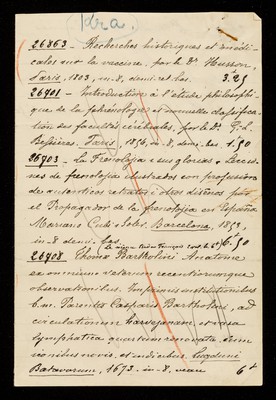 Idra.
26863 – Recherches historiques et médi-
cales sur la vaccine, par le Dr Husson,
Paris, 1803, in-8, demi rel. bas. 3.25
26901 – Introduction à l'étude philosophi-
que de la phrénologie et nouvelle classifica-
tion des facultés cérébrales, par le Dr. G. L.
Bessières. Paris, 1836, in-8, demi-bas. 1.50
26903 – La Frenolojia i sus glorias. Leccio-
nes de frenolojia ilustradas con profusion
de autenticos retratos i otros diseños por
el Propagador de la frenolojia en España
Mariano Cubi i Soler, Barcelona, 1853,
in-8 demi bas. 6.50
26908 Thomæ Bartholini Anatome
ex omnium veterum recentiorumque
observationibus. Imprimis institutionibus
b. m. Parentis Caspari Bartholini, ad
circulationem harvejanam et vasa
lymphatica quartum renovata, cum
iconibus novis et indicibus Lugduni
Batavorum, 1673. in-8. veau 6